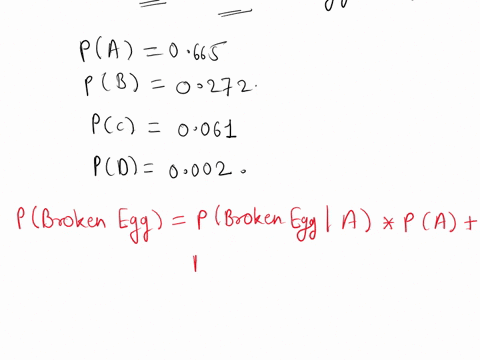 P(A) = 0.665
P(B) = 0.272.
P(C) = 0.061
P(D) = 0.002.
P(Broken Egg) = P(Broken Egg | A) * P(A) +